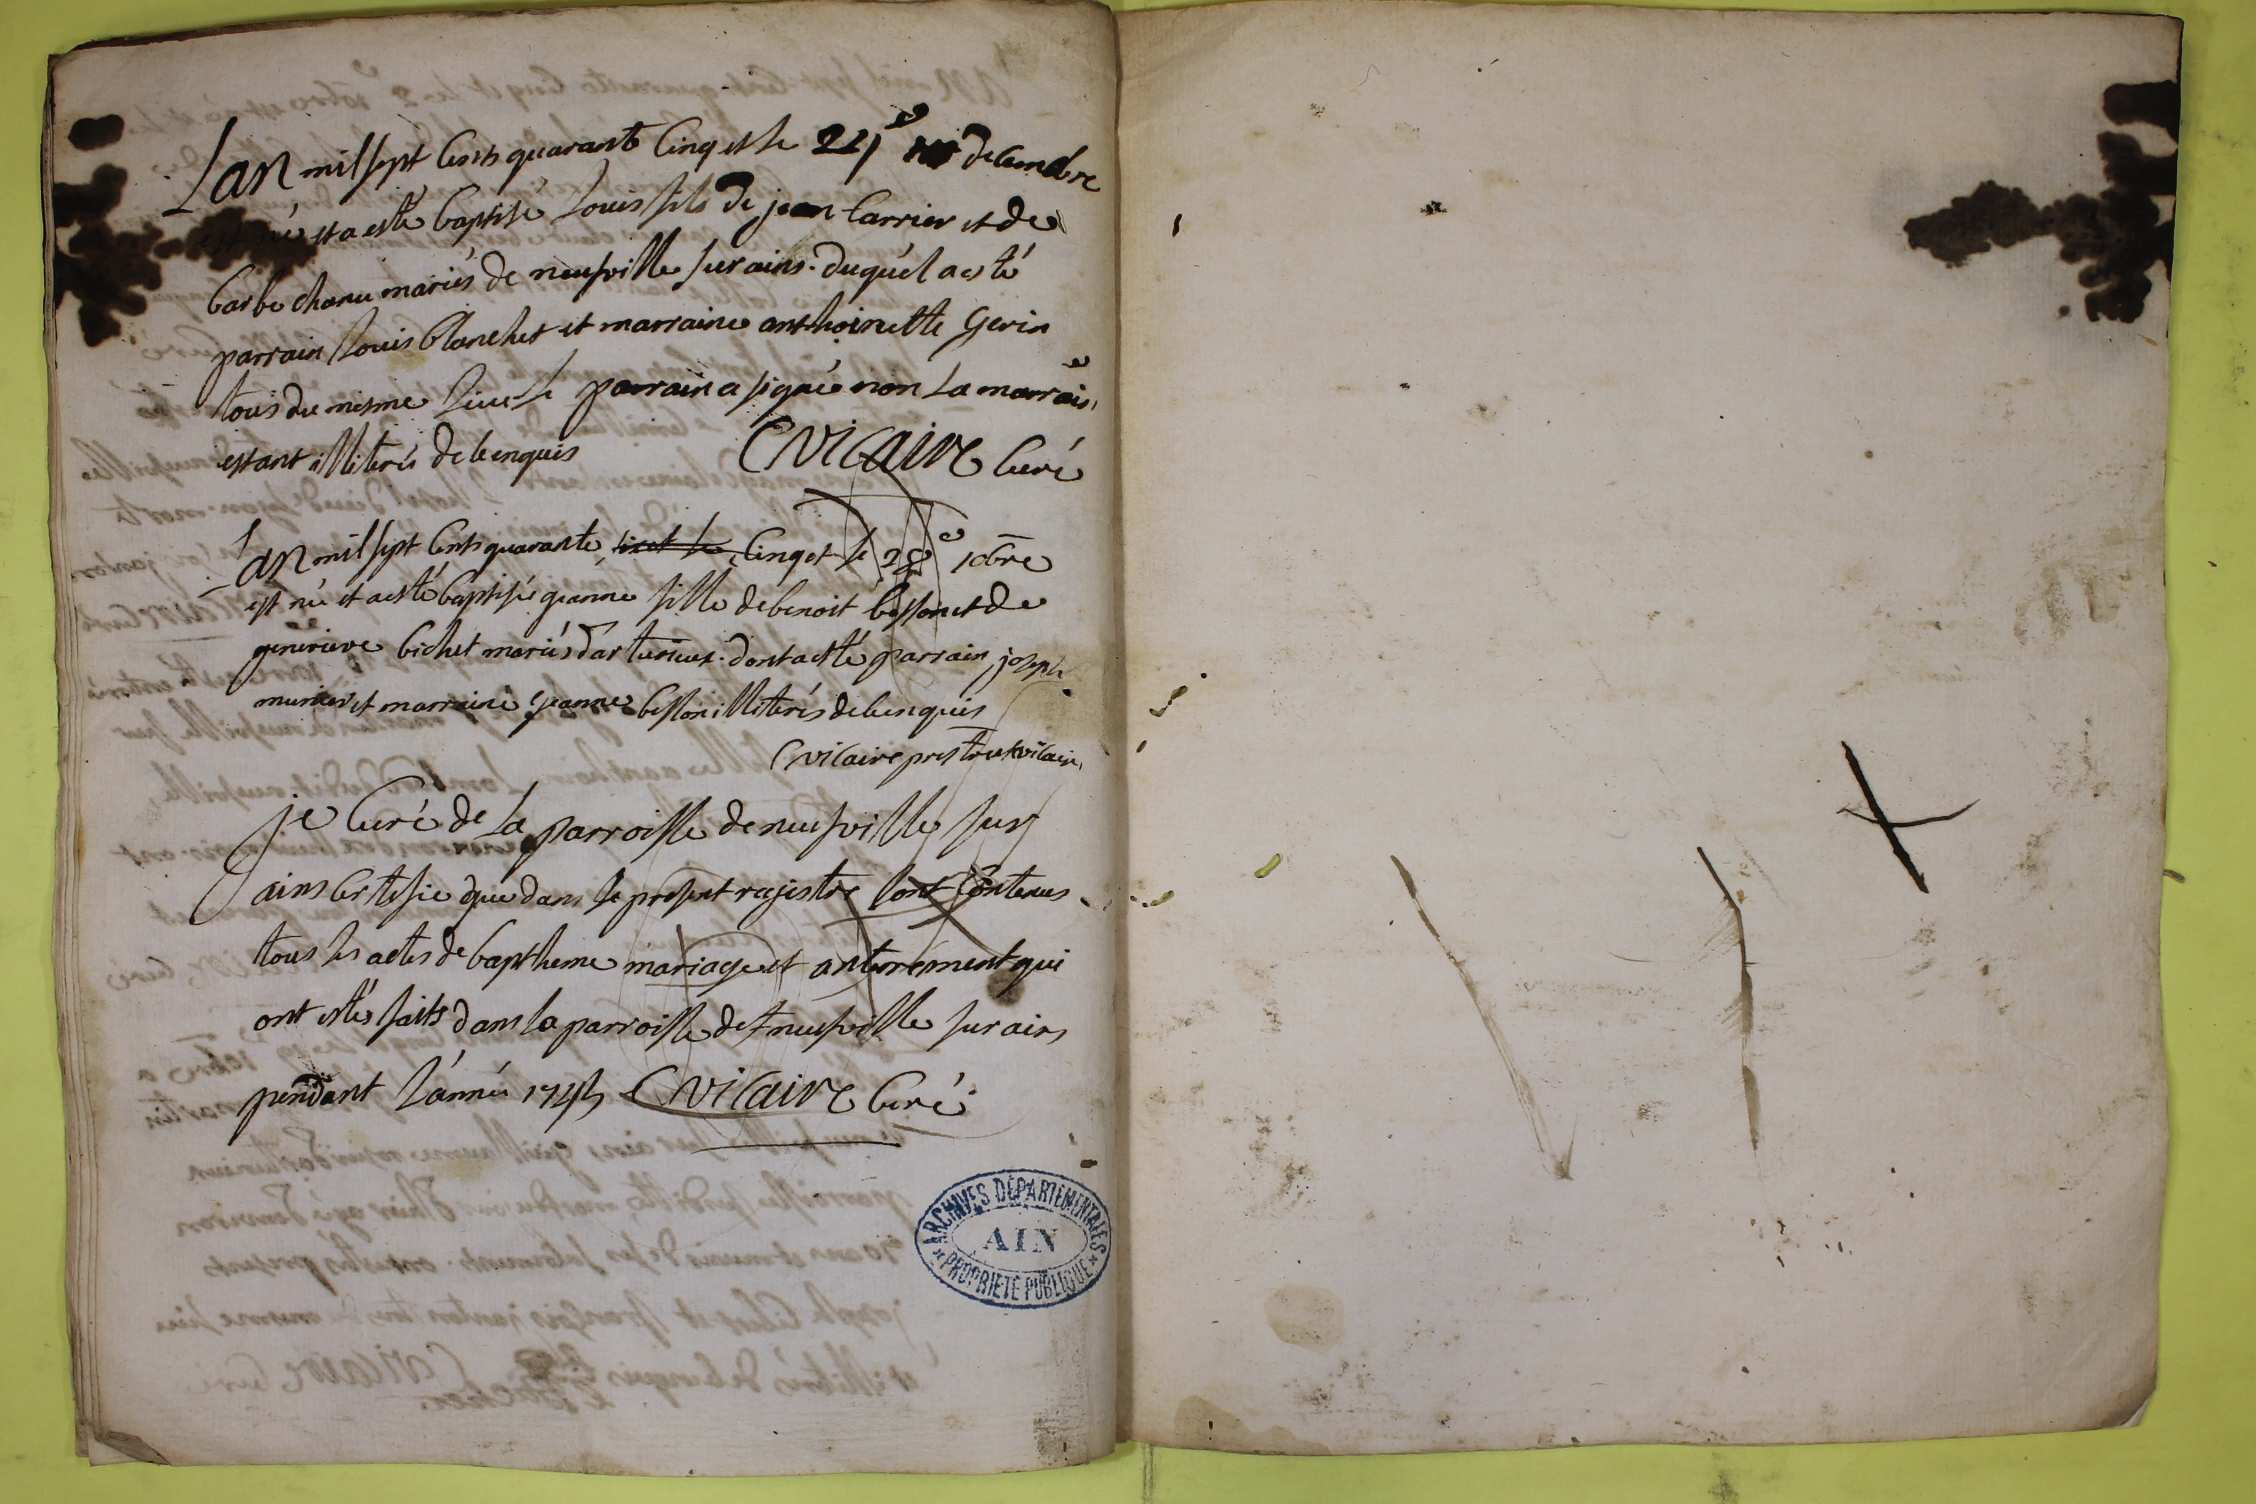 Lan mil sept cents quarante cinq et le 21e decembre
est né et a esté baptisé Louis fils de jean Carrier et de
barbe chanu mariés de neufville sur ains. duquel a esté
parrain Louis blanchet et marraine anthoinette Gerin
tous du mesme lieu le parrain a signé non la marraine
estant illiterés de ce enquis Cvicaire curé
Lan mil sept cents quarante cinq et le 28e 10bre
est née et a esté baptisée jeanne fille de benoit besson et de
genevieve bichet mariés dont a esté parrain joseph
munier et marraine jeanne besson illiterés de ce enquis
Cvicaire prestre vicaire
je curé de la parroisse de neufville sur
ains certifie que dans le present registre sont contenus
tous les actes de baptheme mariage et anterement qui
ont estés faits dans la parroisse de neufville sur ains
pendant l'année 1745 Cvicaire curé
ARCHIVES DÉPARTEMENTALES
AIN
PROPRIÉTÉ PUBLIQUE